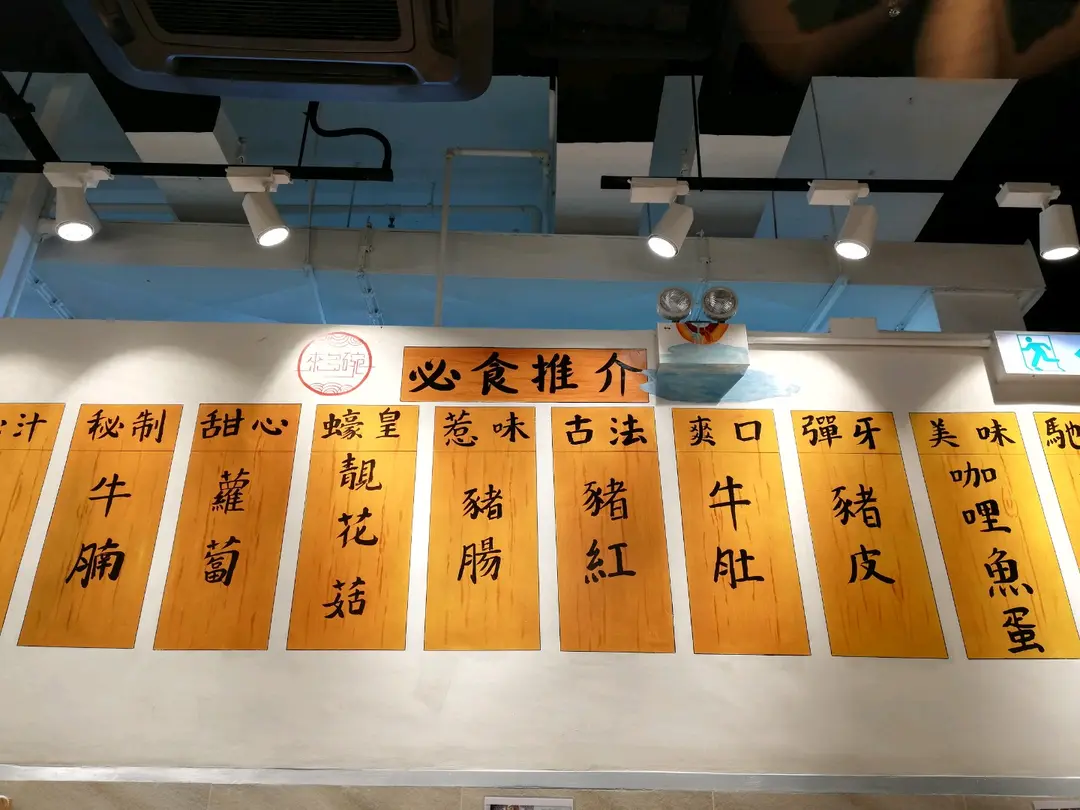 必食推介
汁
秘制
牛腩
甜心
蘿蔔
蠔皇
靚花菇
惹味
豬腸
古法
豬紅
爽口
牛肚
彈牙
豬皮
美味
咖哩魚蛋
馳